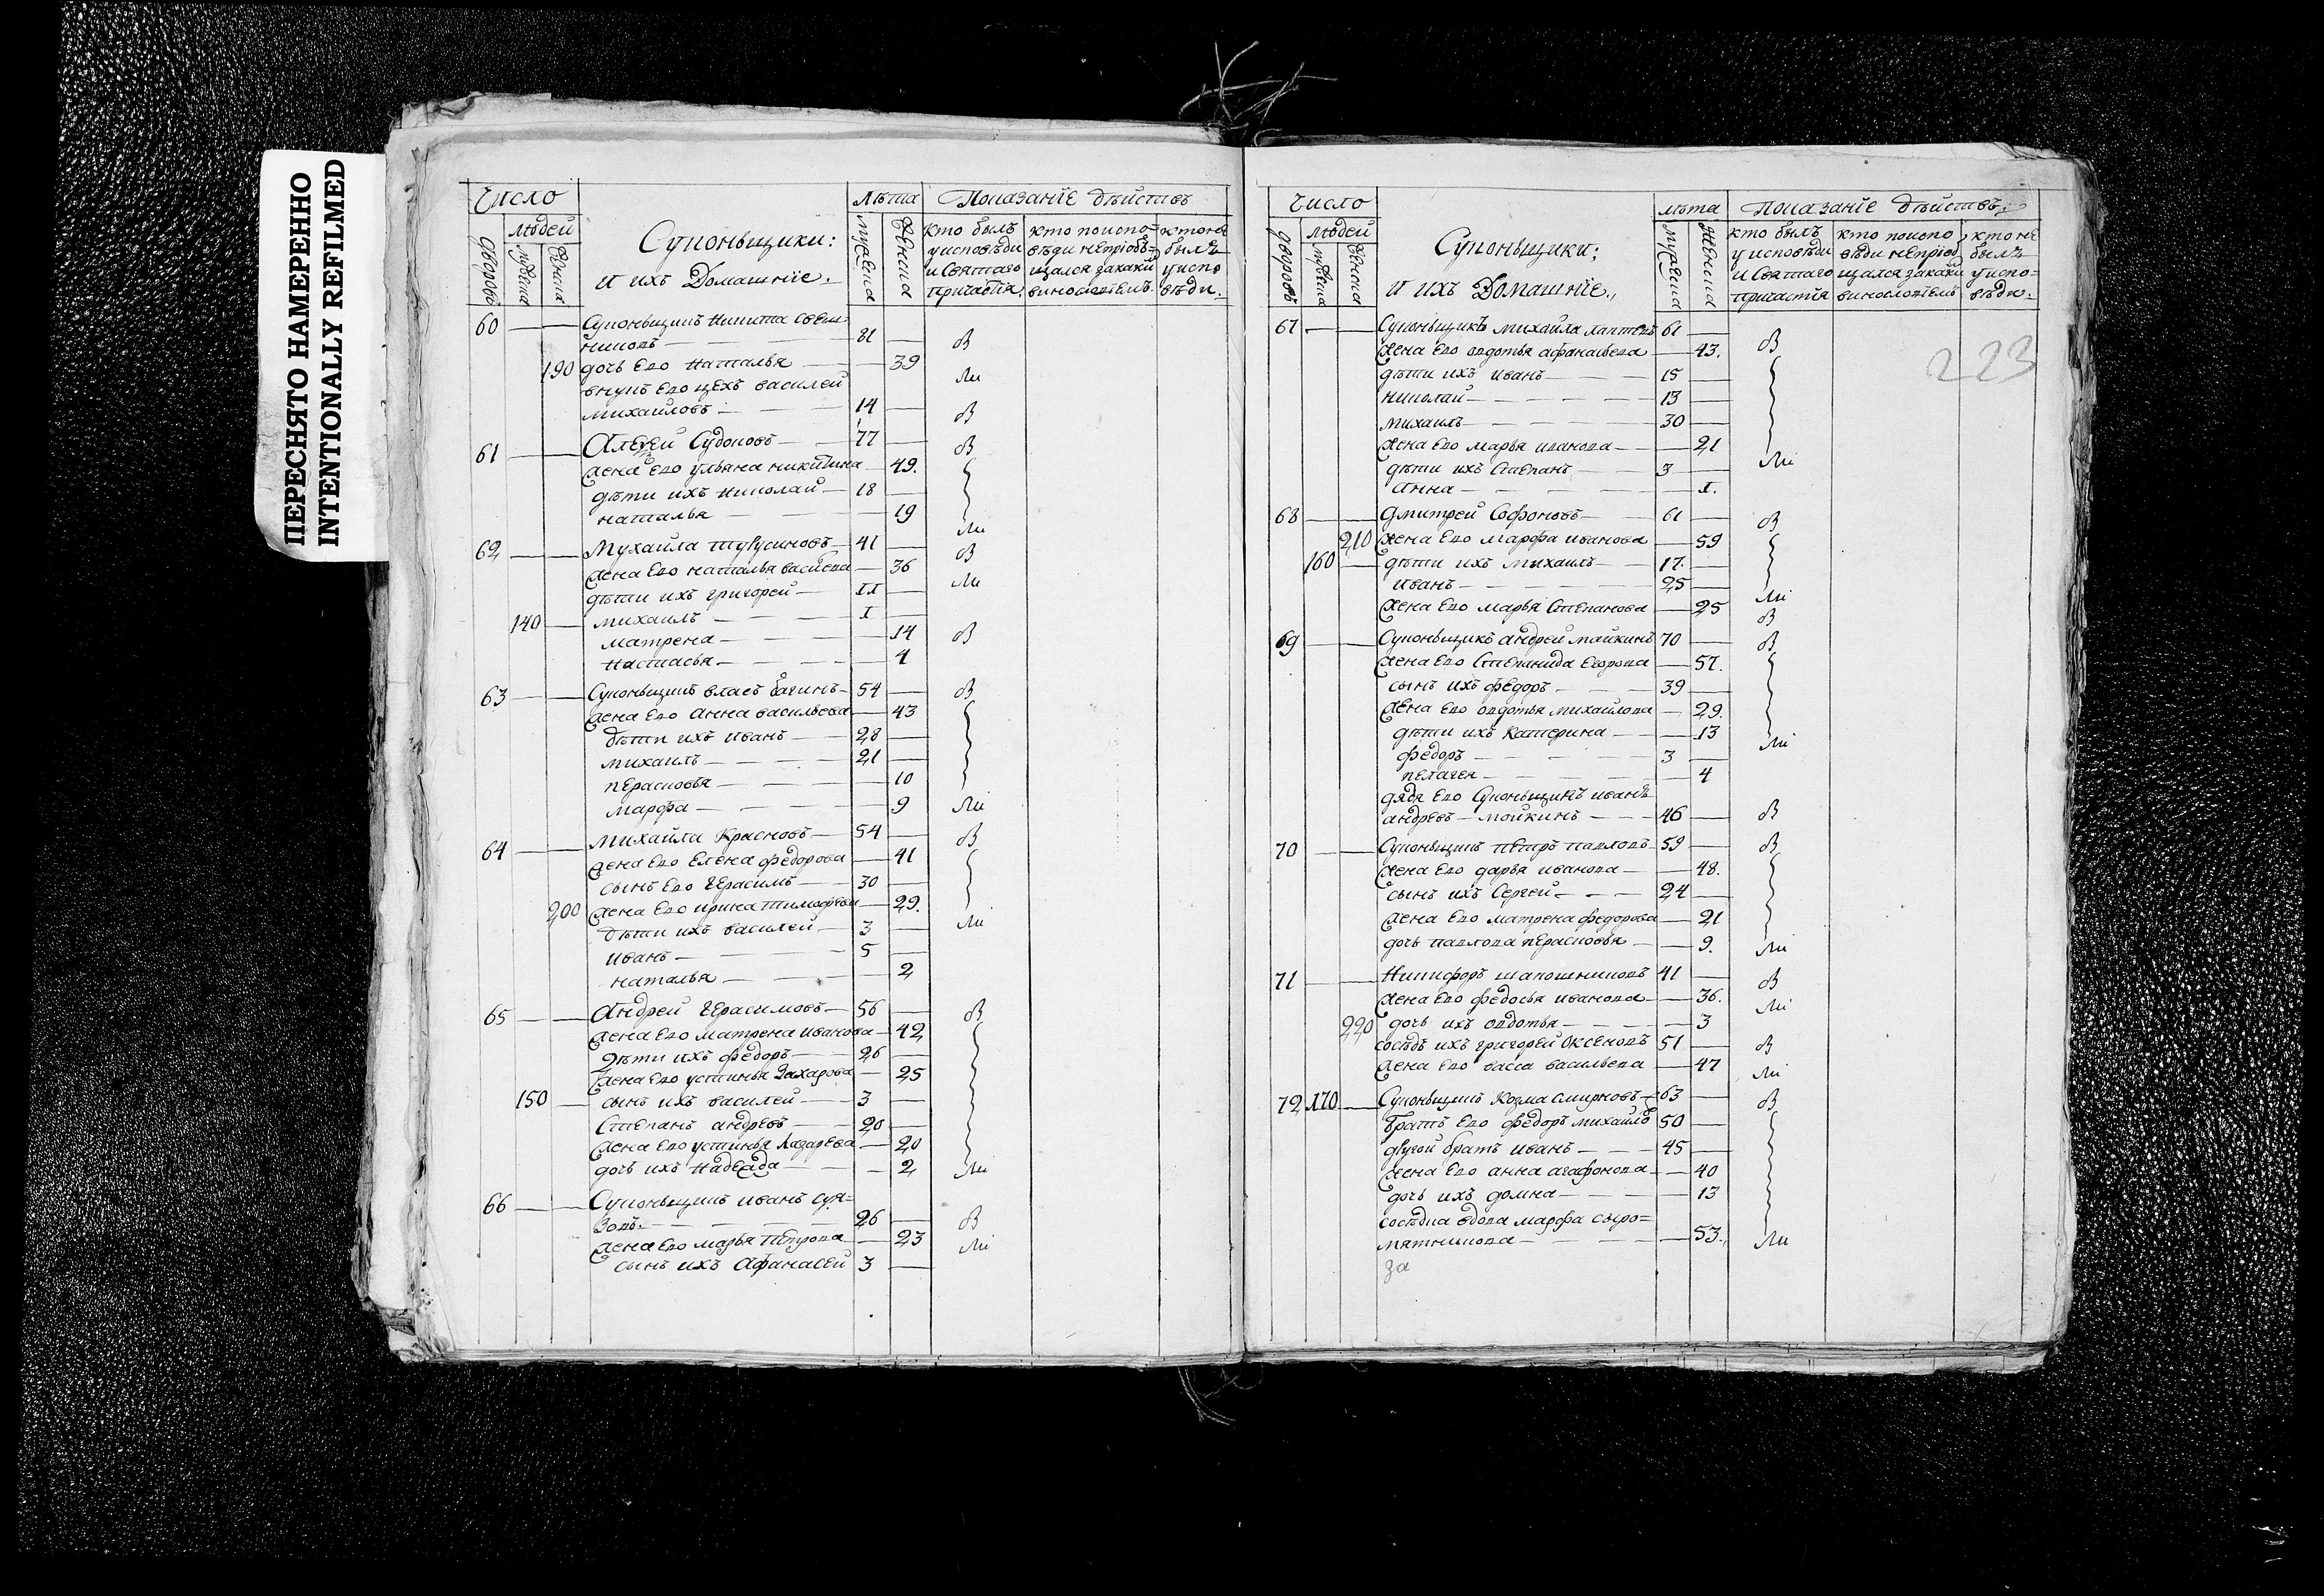 ПЕРЕСНЯТО НАМЕРЕННО
INTENTIONALLY REFILMED
Число
людей
дворовъ
мужеска
женска
Суконьщики:
и ихъ Домашнїе.
Лѣта
мужеска
женска
Показанїе дѣйствъ
кто былъ у исповѣди и Святаго причастїя.
кто по исповѣди не прїобщался за каким винословїемъ.
кто не былъ у исповѣди.
60 — — Суконьщикъ Никита
— 81 — В
190 дочь Ево Наталья — 39
внукъ Ево цехъ василей Ли
михайловъ — 14 — В
61 — — Алексей — 77 — В
жена Ево ульяна никитина — 49.
дѣти ихъ Николай — 18 —
наталья — 19 Ли
62 — — Михайла — 41 — В
жена Ево наталья — 36 Ли
дѣти ихъ григорей — II —
140 — михаилъ — I —
матрена — 14 В
настасья — 4
63 — — Суконьщикъ власъ — 54 — В
жена Ево Анна васильева — 43
дѣти ихъ иванъ — 28 —
михаилъ — 21 —
перасковья — 10
марфа — 9 Ли
64 — — Михайла Красновъ — 54 — В
жена Ево Елена федорова — 41
сынъ Ево Герасимъ — 30 —
200 жена Ево ирина тимофѣева — 29.
дѣти ихъ василей — 3 — Ли
иванъ — 5 —
наталья — 2
65 — — Андрей Герасимовъ — 56 — В
жена Ево матрена иванова — 42
дѣти ихъ федоръ — 26 —
жена Ево устинья Захарова — 25
150 — сынъ ихъ василей — 3 —
Степанъ андреѣвъ — 20 —
жена Ево устинья Лазарева — 20
дочь ихъ надежда — 2 Ли
66 — — Суконьщикъ иванъ
— 26 — В
жена Ево марья Петрова — 23 Ли
сынъ ихъ Афанасей 3 —
223
Число
людей
дворовъ
мужеска
женска
Суконьщики:
и ихъ Домашнїе.
лѣта
мужеска
женска
Показанїе дѣйствъ
кто былъ у исповѣди и Святаго причастїя
кто по исповѣди не прїобщался за каким винословїемъ
кто не былъ у исповѣди.
67 — — Суконьщикъ михайла лаптевъ 61 — В
жена Ево овдотья афанасьева — 43.
дѣти ихъ иванъ — 15 —
николай — 13 —
михаилъ — 30 —
жена Ево марья иванова — 21
дѣти ихъ Степанъ — 3 — Ли
Анна — I.
68 — — Дмитрей Софоновъ — 61 — В
210 жена Ево марфа иванова — 59
160 — дѣти ихъ михаилъ — 17. —
иванъ — 25 — Ли
жена Ево марья Степанова — 25 В
69 — — Суконьщикъ андрей майкинъ 70 — В
жена Ево Степанида Егорова — 57.
сынъ ихъ федоръ — 39 —
жена Ево овдотья михайлова — 29.
дѣти ихъ катерина — 13 Ли
федоръ — 3 —
пелагея — 4
дядя Ево Суконьщикъ иванъ
андреѣвъ — майкинъ — 46 — В
70 — — Суконьщикъ петръ павловъ 59 — В
жена Ево дарья иванова — 48.
сынъ ихъ Сергей — 24 —
жена Ево матрена федорова — 21
дочь павлова перасковья — 9. Ли
71 — — Никифоръ шапошниковъ 41 — В
жена Ево федосья иванова — 36. Ли
220 дочь ихъ овдотья — 3
сосѣдъ ихъ григорей Оксеновъ 51 — В
жена Ево васса васильева — 47 Ли
72 170 — Суконьщикъ Козма смирновъ — 63 — В
братъ Ево федоръ михайловъ 50 —
другой братъ иванъ — 45 —
жена Ево анна агафонова — 40
дочь ихъ домна — 13
сосѣдка вдова марфа сыро=
мятникова — 53. Ли
за